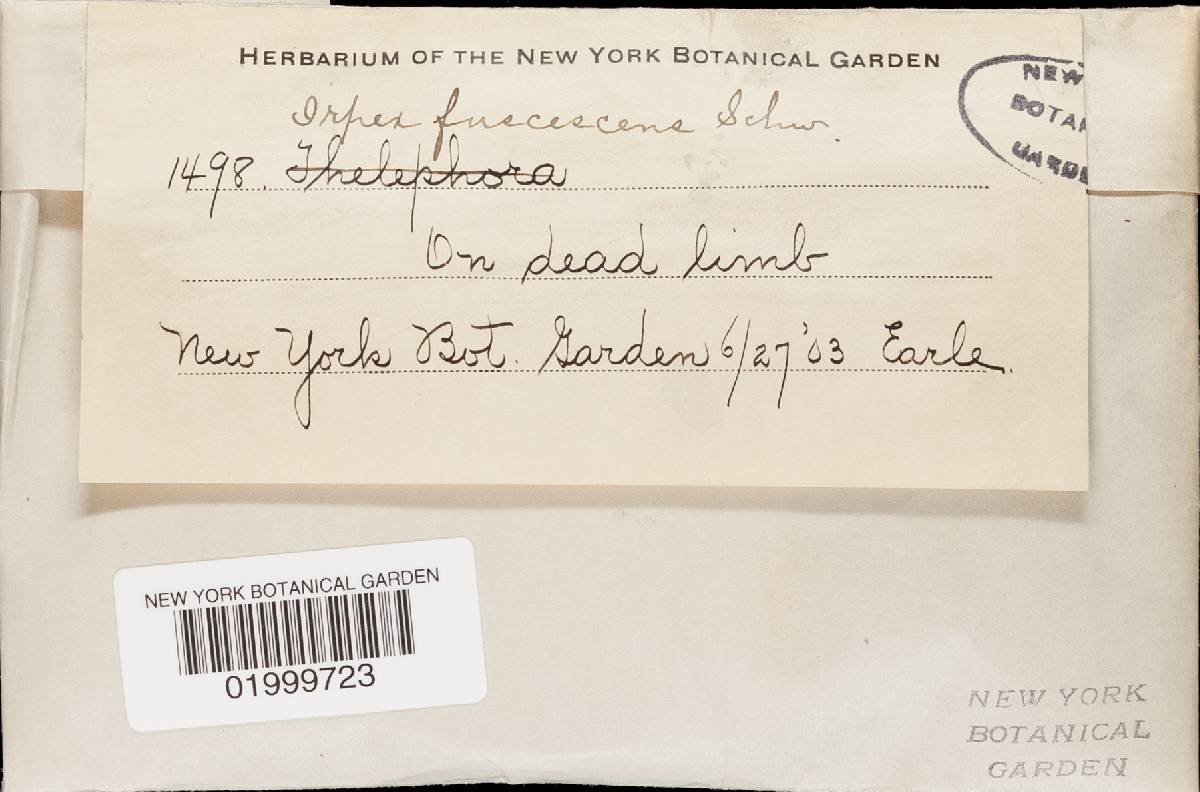 HERBARIUM OF THE NEW YORK BOTANICAL GARDEN
Irpex fuscescens Schw.
1498. Thelephora
On dead limb
New York Bot. Garden 6/27 '03 Earle.
NEW
BOTA
GARDE
NEW YORK BOTANICAL GARDEN
01999723
NEW YORK
BOTANICAL
GARDEN